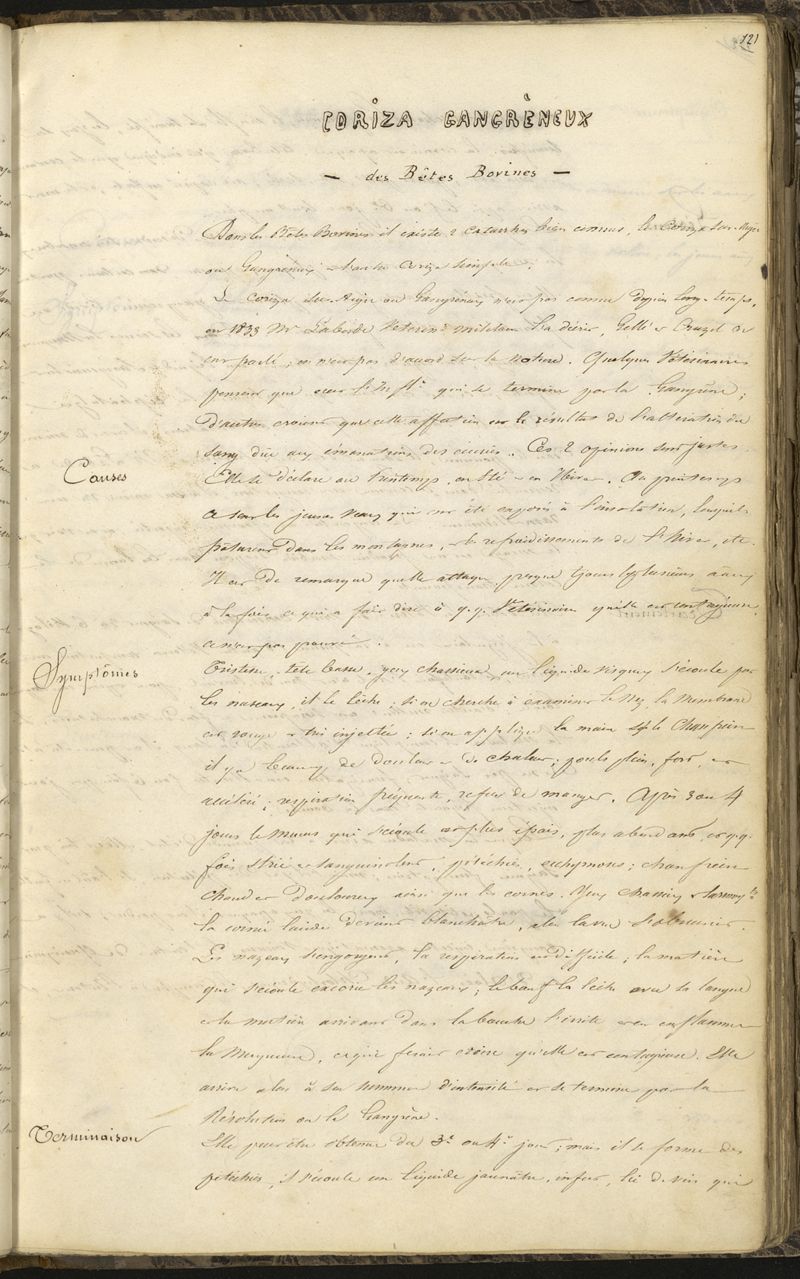 121
CORIZA GANGRÈNEUX
— des Bêtes Bovines —
Dans les Bêtes Bovines il existe 2 catarrhes bien connus, le Coriza Sur-Aigu
ou Gangréneux et l'autre Coriza simple.
Le coriza Sur-Aigu ou Gangréneux n'est pas connu depuis long-temps,
en 1833 Mr Laborde Vétérinre militaire l'a décrit, Gellé et Cruzel en
ont parlé; on n'est pas d'accord sur la nature. Quelques Vétérinaires
pensent que c'est qui se termine par la Gangrène;
d'autres croient que cette affection est le résultat de l'altération du
sang due aux émanations des écuries. Ces 2 opinions sont justes.
Causes
Elle se déclare au Printemps, en Eté et en Hiver. Au printemps
ce sont les jeunes veaux qui ont été exposés à l'insolation, lorsqu'ils
pâturent dans les montagnes, et le refroidissements de l'hiver, etc.
Il est de remarque qu'elle attaque presque plusieurs
à la fois ce qui a fait dire à q.q. Vétérinaires qu'elle est contagieuse,
ce n'est pas prouvé.
Symptômes
Tristesse, tête basse, yeux chassieux, un liquide visqueux s'écoule par
les naseaux, il le lèche; si on cherche à examiner le Nez, la Membrane
est rouge et très injectée; si on applique la main sur le Chanfrein
il y a beaucoup de douleur et de chaleur; pouls plein, fort, et
accéléré; respiration fréquente, refus de manger. Après 3 ou 4
jours le mucus qui s'écoule est plus épais, plus abondant, et q.q.
fois strié et sanguinolent; pétéchies, ecchymoses; chanfrein
chaud et douloureux ainsi que les cornes. Yeux chassieux
la cornée lucide devient blanchâtre, et la vue s'obscurcit.
Les nazeaux s'engorgent, la respiration est difficile; la matière
qui s'écoule excorie les nazeaux; le bœuf la lèche avec la langue
et la matière arrivant dans la bouche l'irrite et en enflamme
la Muqueuse, ce qui ferait croire qu'elle est contagieuse. Elle
arrive alors à son summum d'intensité et se termine par la
Résolution ou la Gangrène.
Terminaison
Elle peut être obtenue du 3e. au 4e. jour; mais il se forme des
pétéchies, il s'écoule un liquide jaunâtre, infect, qui